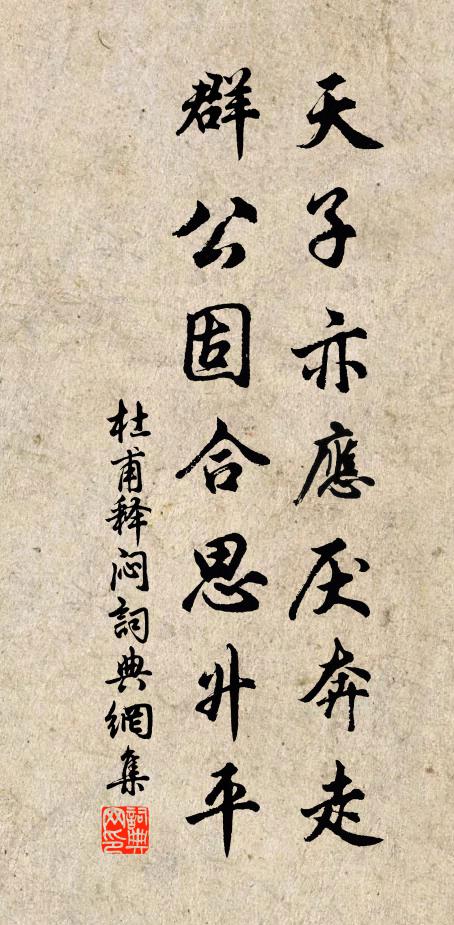 天子亦應厌奔走
群公固合思升平
杜甫释闷詞典網集
詞典网印